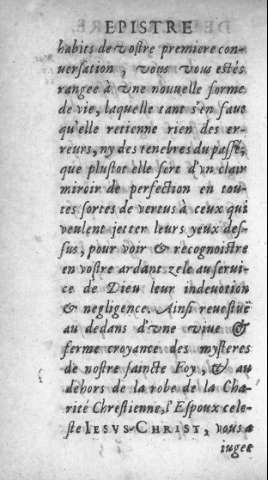 EPISTRE
habits de vostre premiere con-
uersation, vous vous estes
rangee à vne nouuelle forme
de vie, laquelle tant s'en faut
qu'elle retienne rien des er-
reurs, ny des tenebres du passé,
que plustot elle sert d'vn clair
miroir de perfection en tou-
tes sortes de vertus à ceux qui
veulent jetter leurs yeux des-
sus, pour voir & recognoistre
en vostre ardant zele au serui-
ce de Dieu leur indeuotion
& negligence. Ainsi reuestuë
au dedans d'vne viue &
ferme croyance des mysteres
de nostre saincte Foy, & au
dehors de la robe de la Cha-
rité Chrestienne, l'Espoux cele-
ste IESVS-CHRIST, vous a
iugee